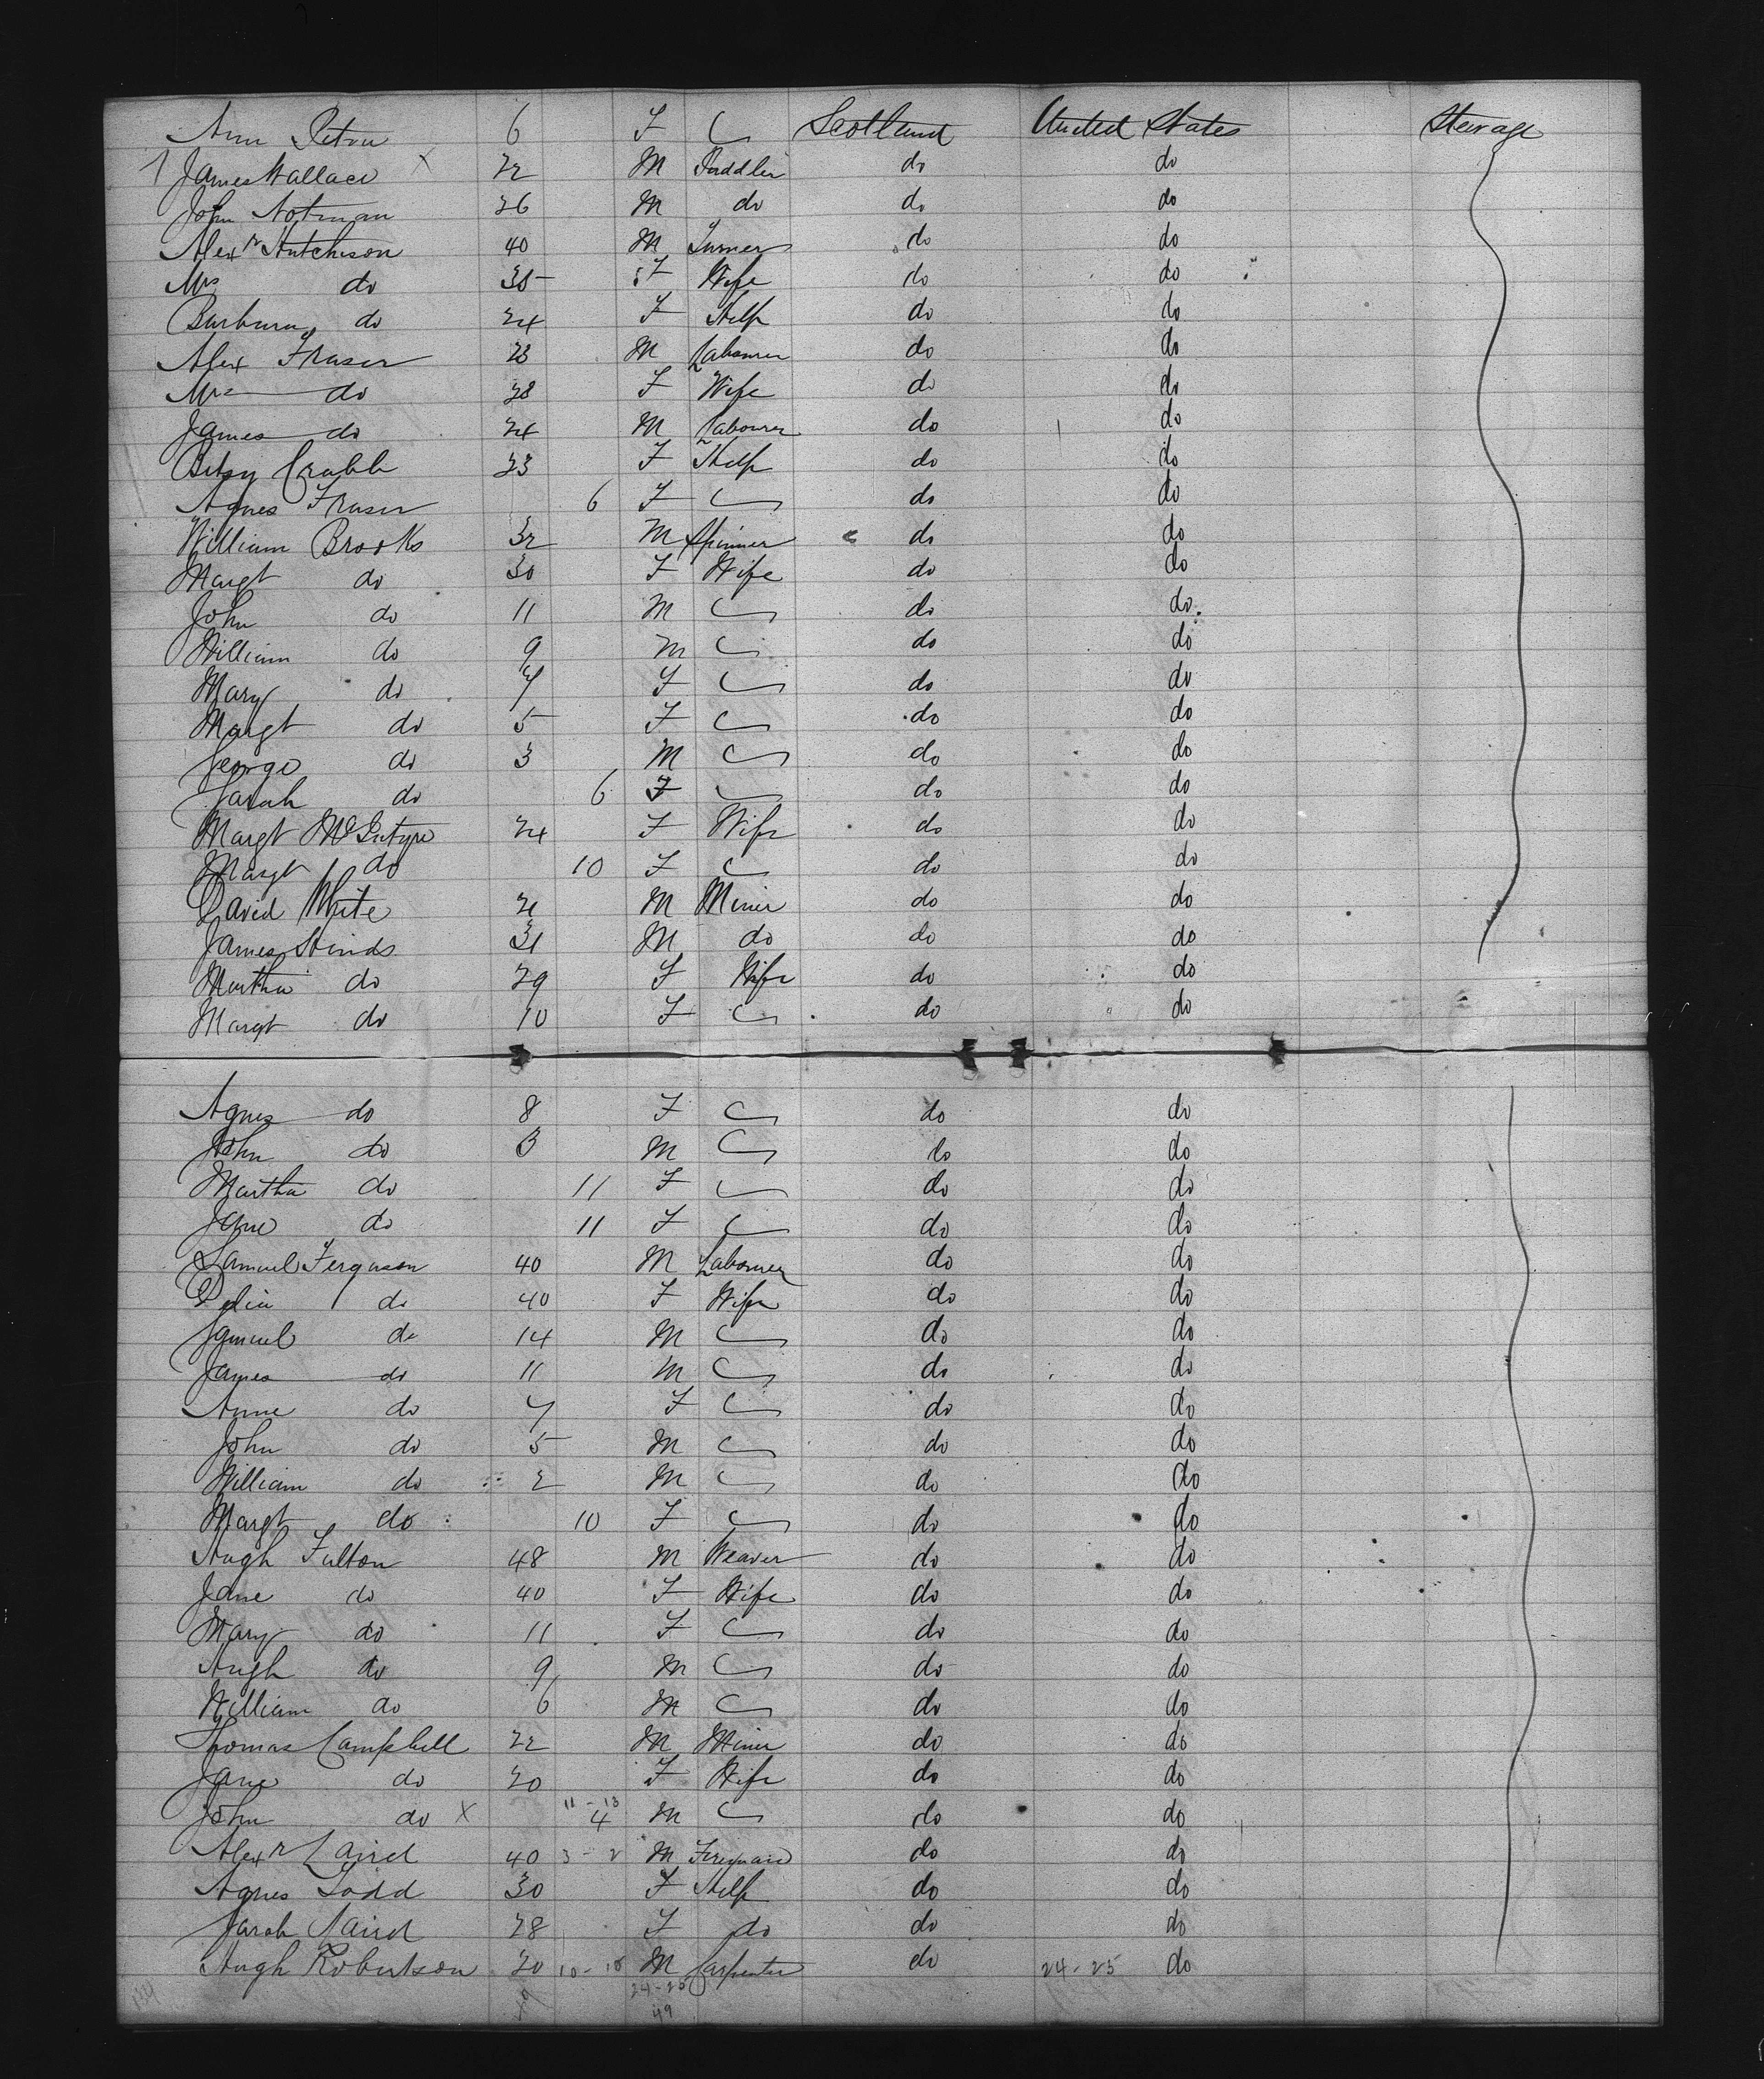 Ann 6 F Scotland United States Steerage
1 James Wallace X 22 M do do
John Notman 26 M do do do
Alexr Hutchison 40 M Turner do do
Mrs do 35 F Wife do do
Barbara do 24 F Help do do
Alex Fraser 23 M Labourer do do
Mrs do 28 F Wife do do
James do 24 M Labourer do do
Betsy Crabb 23 F Help do do
Agnes Fraser 6 F do do
William Brooks 32 M Spinner do do
Margt do 30 F Wife do do
John do 11 M do do
William do 9 M do do
Mary do 7 F do do
Margt do 5 F do do
George do 3 M do do
Sarah do 6 F do do
Margt McIntyre 24 F Wife do do
Margt do 10 F do do
David White M Miner do do
James Hinds 31 M do do do
Martha do 29 F Wife do do
Margt do 10 F do do
Agnes do 8 F do do
John do 3 M do do
Martha do 11 F do do
Jane do 11 F do do
Samuel Ferguson 40 M Labourer do do
Delia do 40 F Wife do do
Samuel do 14 M do do
James do 11 M do do
Anne do 7 F do do
John do 5 M do do
William do 2 M do do
Margt do 10 F do do
Hugh Fulton 48 M Weaver do do
Jane do 40 F Wife do do
Mary do 11 F do do
Hugh do 9 M do do
William do 6 M do do
Thomas Campbell 22 M Miner do do
Jane do 20 F Wife do do
John do X 11-13 4 M do do
Alexr Laird 40 3-2 M do do
Agnes Todd 30 F Help do do
Sarah Laird 28 F do do do
Hugh Robertson 20 10-10 M Carpenter do 24-25 do
24-25
49